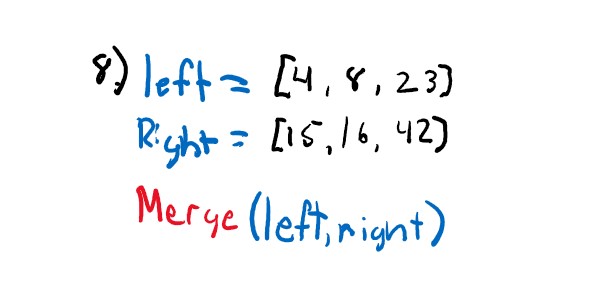 8) left = [4, 8, 23]
Right = [15, 16, 42]
Merge (left, right)